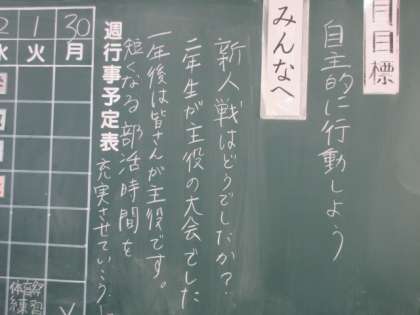 月目標
自主的に行動しよう
みんなへ
新人戦はどうでしたか？
二年生が主役の大会でした
一年後は皆さんが主役です。
短くなる部活時間を
充実させていこう
週行事予定表
30 月
1 火
2 水
練習